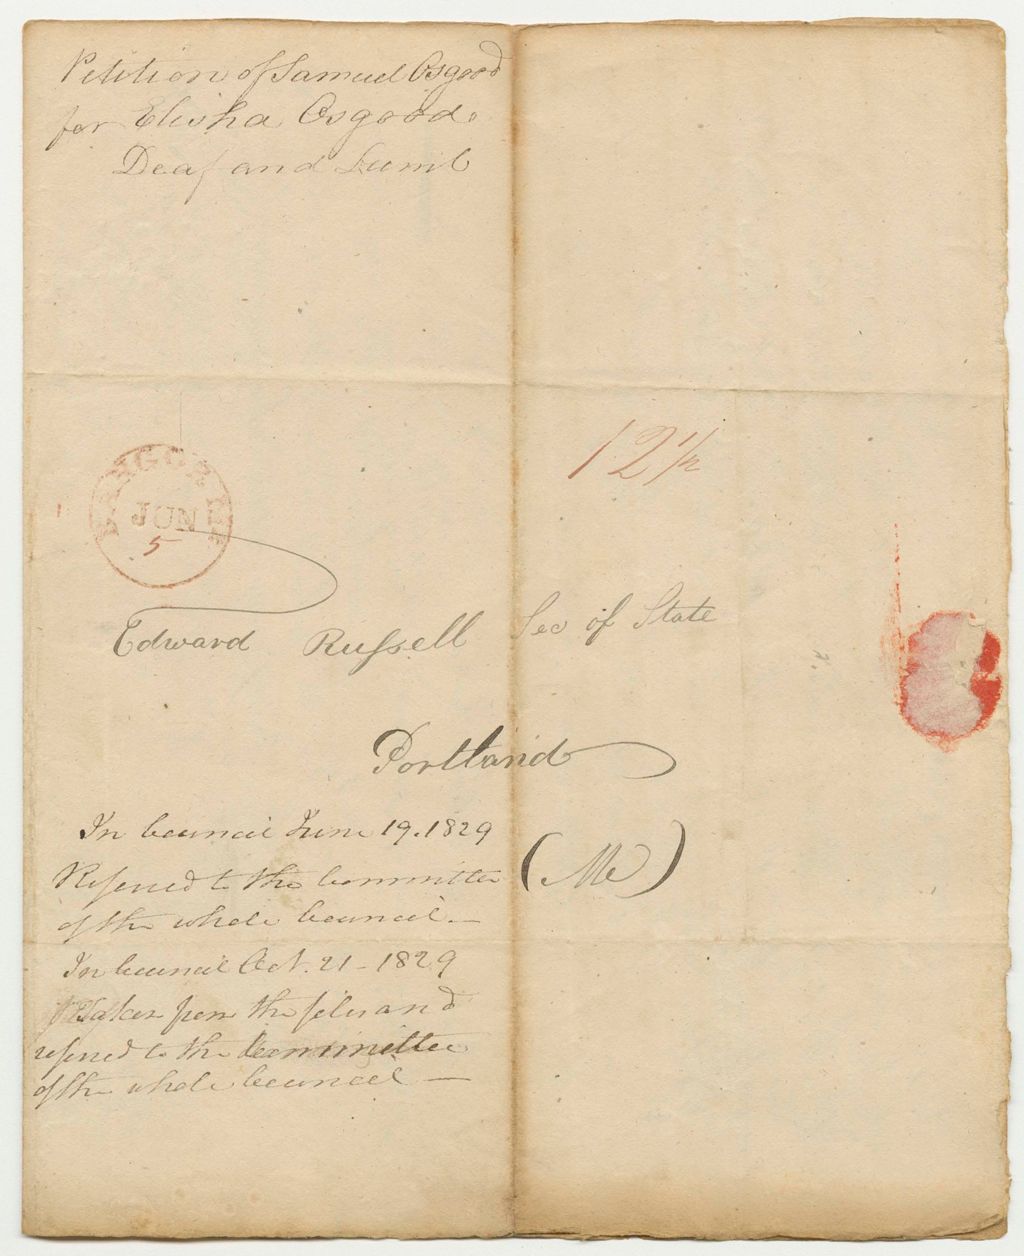 Petition of Samuel Osgood
for Elisha Osgood.
Deaf and Dumb
12 1/2
BANGOR ME
JUN
5
Edward Russell Sec of State
Portland
(Me)
In Council June 19. 1829
Referred to the Committee
of the whole Council. —
In Council Oct. 21 - 1829
Taken from the files and
referred to the Committee
of the whole Council —